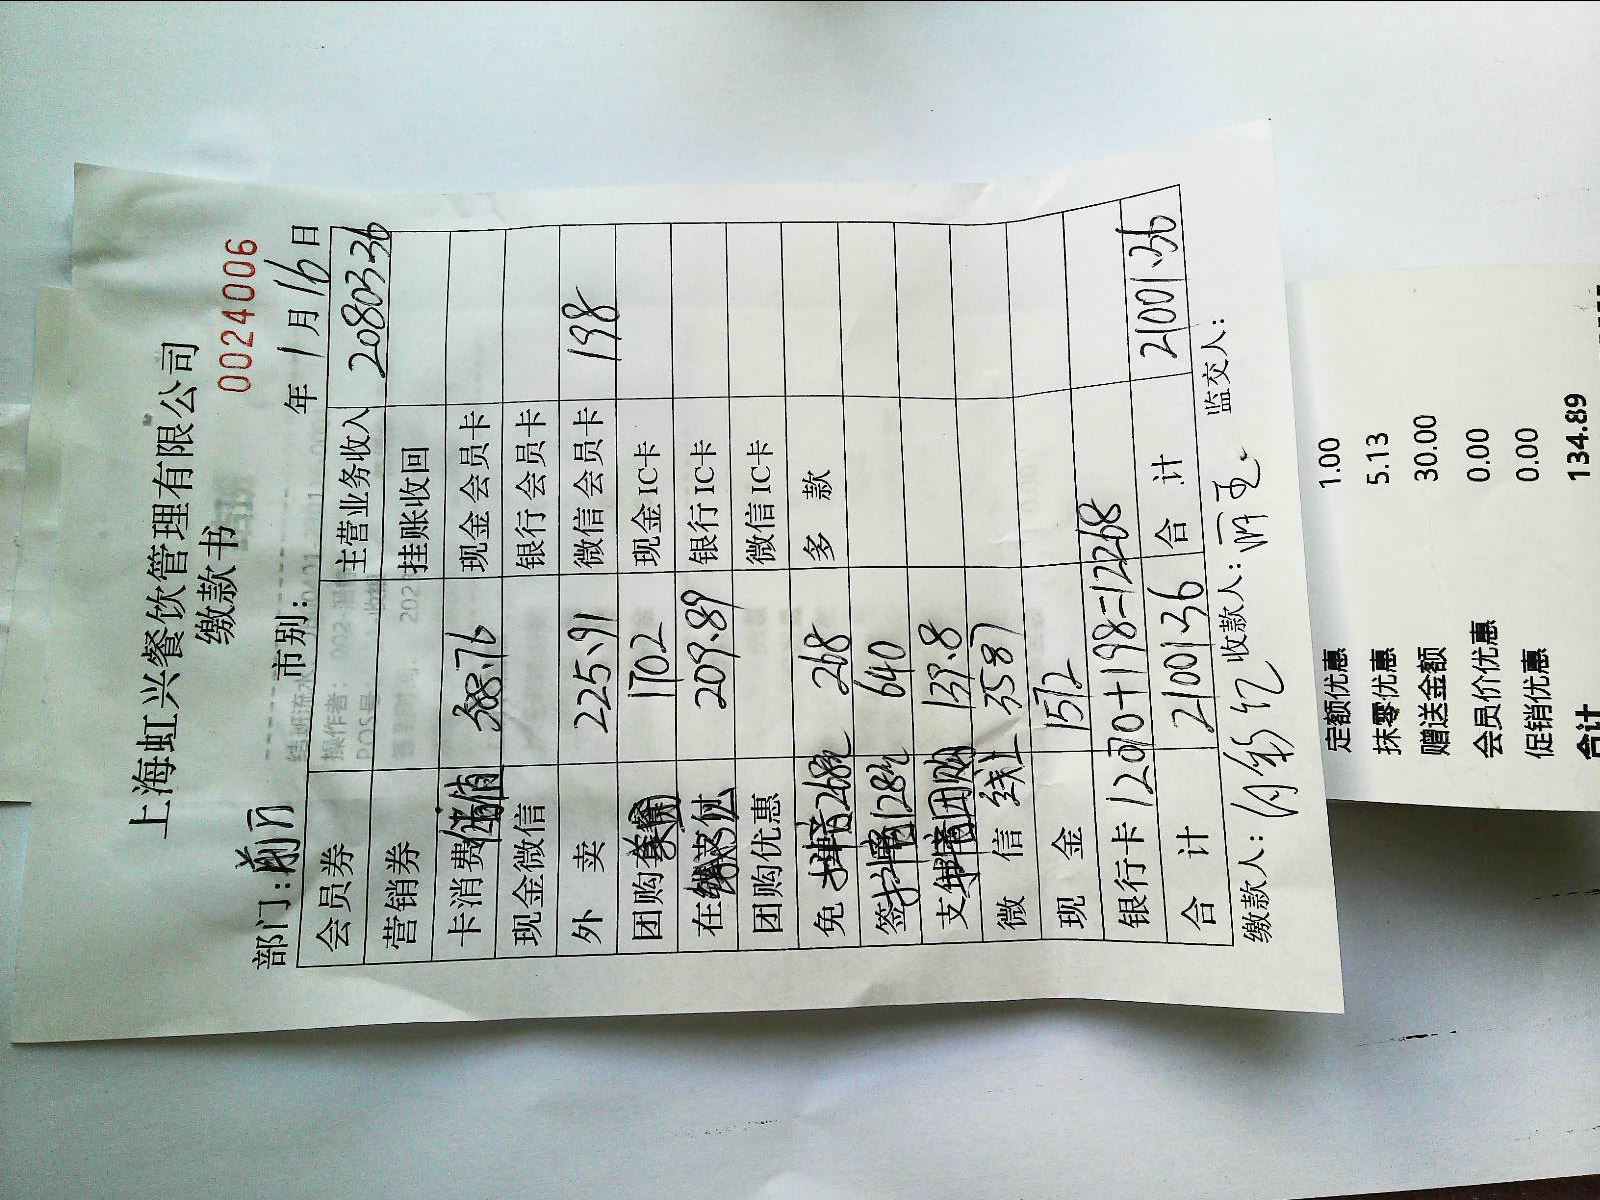 上海虹兴餐饮管理有限公司
缴款书
0024006
部门: 市别: 年 1月16日
会员券 主营业务收入 20803.36
营销券 挂账收回
卡消费储值 388.76 现金会员卡
现金微信 银行会员卡
外卖 225.91 微信会员卡 198
团购 1702 现金IC卡
在线支付 209.89 银行IC卡
团购优惠 微信IC卡
免 268 多款
签 640
支 139.8
微信 线上 3587
现金 1572
银行卡 12070+198=12268
合计 21001.36 合计 21001.36
缴款人: 收款人: 监交人:
定额优惠 1.00
抹零优惠 5.13
赠送金额 30.00
会员价优惠 0.00
促销优惠 0.00
合计 134.89